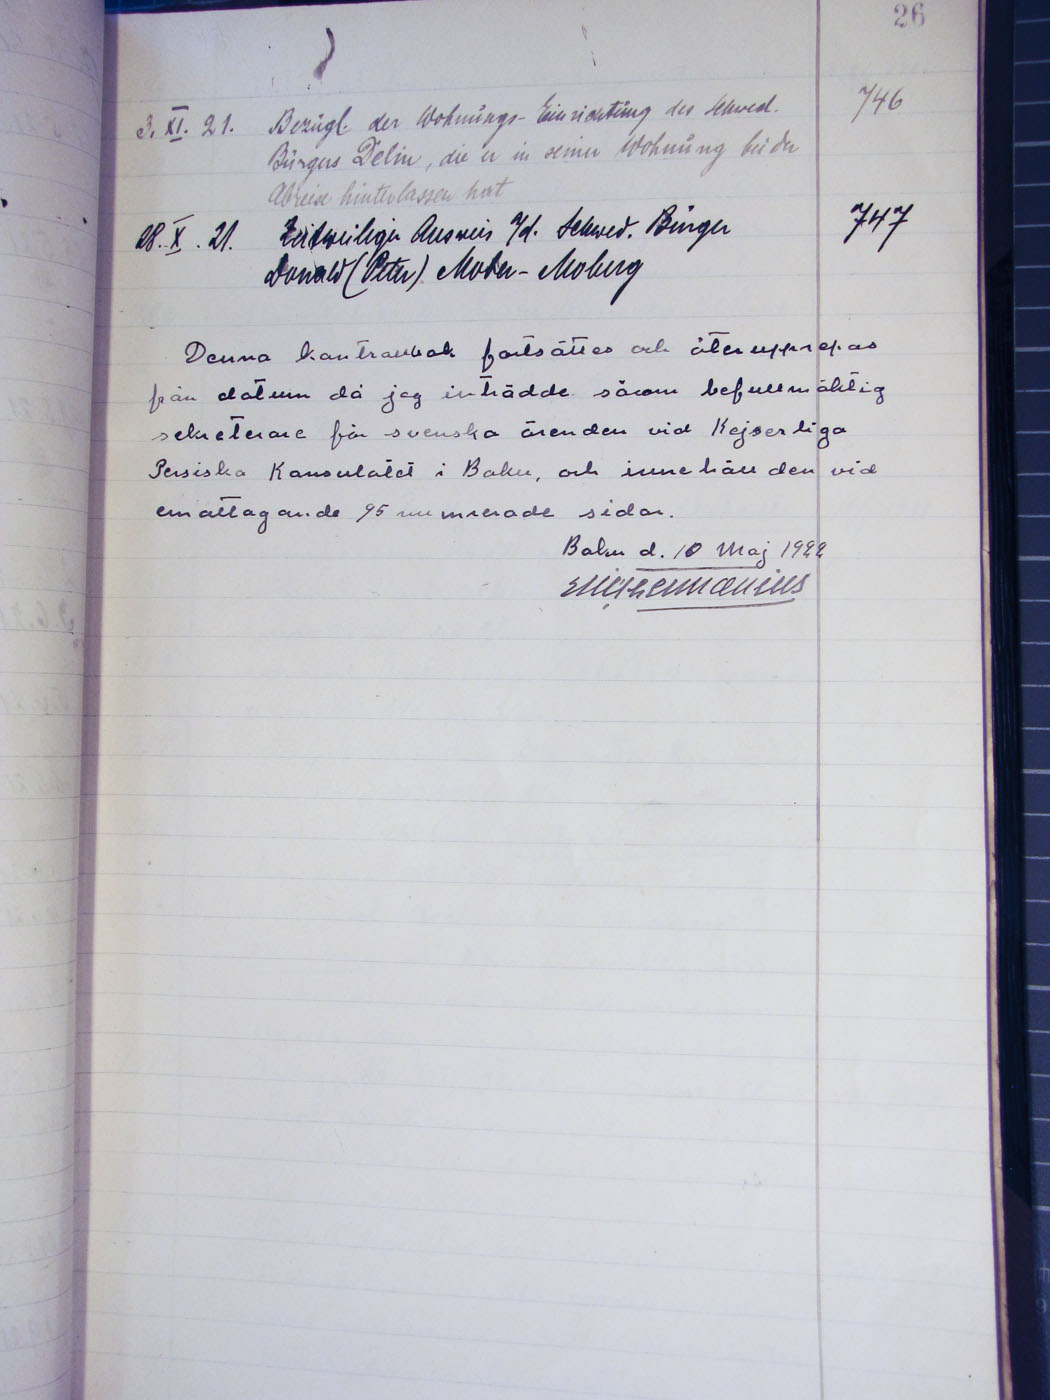 26
3. XI. 21. Bezügl. der Wohnungs-Einrichtung des Schwed. 746
Bürgers Delin, die er in seiner Wohnung bei der
Abreise hinterlassen hat
28. X. 21. Zeitweiliger Ausweis f/d. Schwed. Bürger 747
Donald (Peter) Moberg
Denna fortsättes och återupprepas
från datum då jag inträdde såsom befullmäktig
sekreterare för svenska ärenden vid Kejserliga
Persiska Konsulatet i Baku, och innehåller den vid
emottagande 95 numrerade sidor.
Baku d. 10 Maj 1922